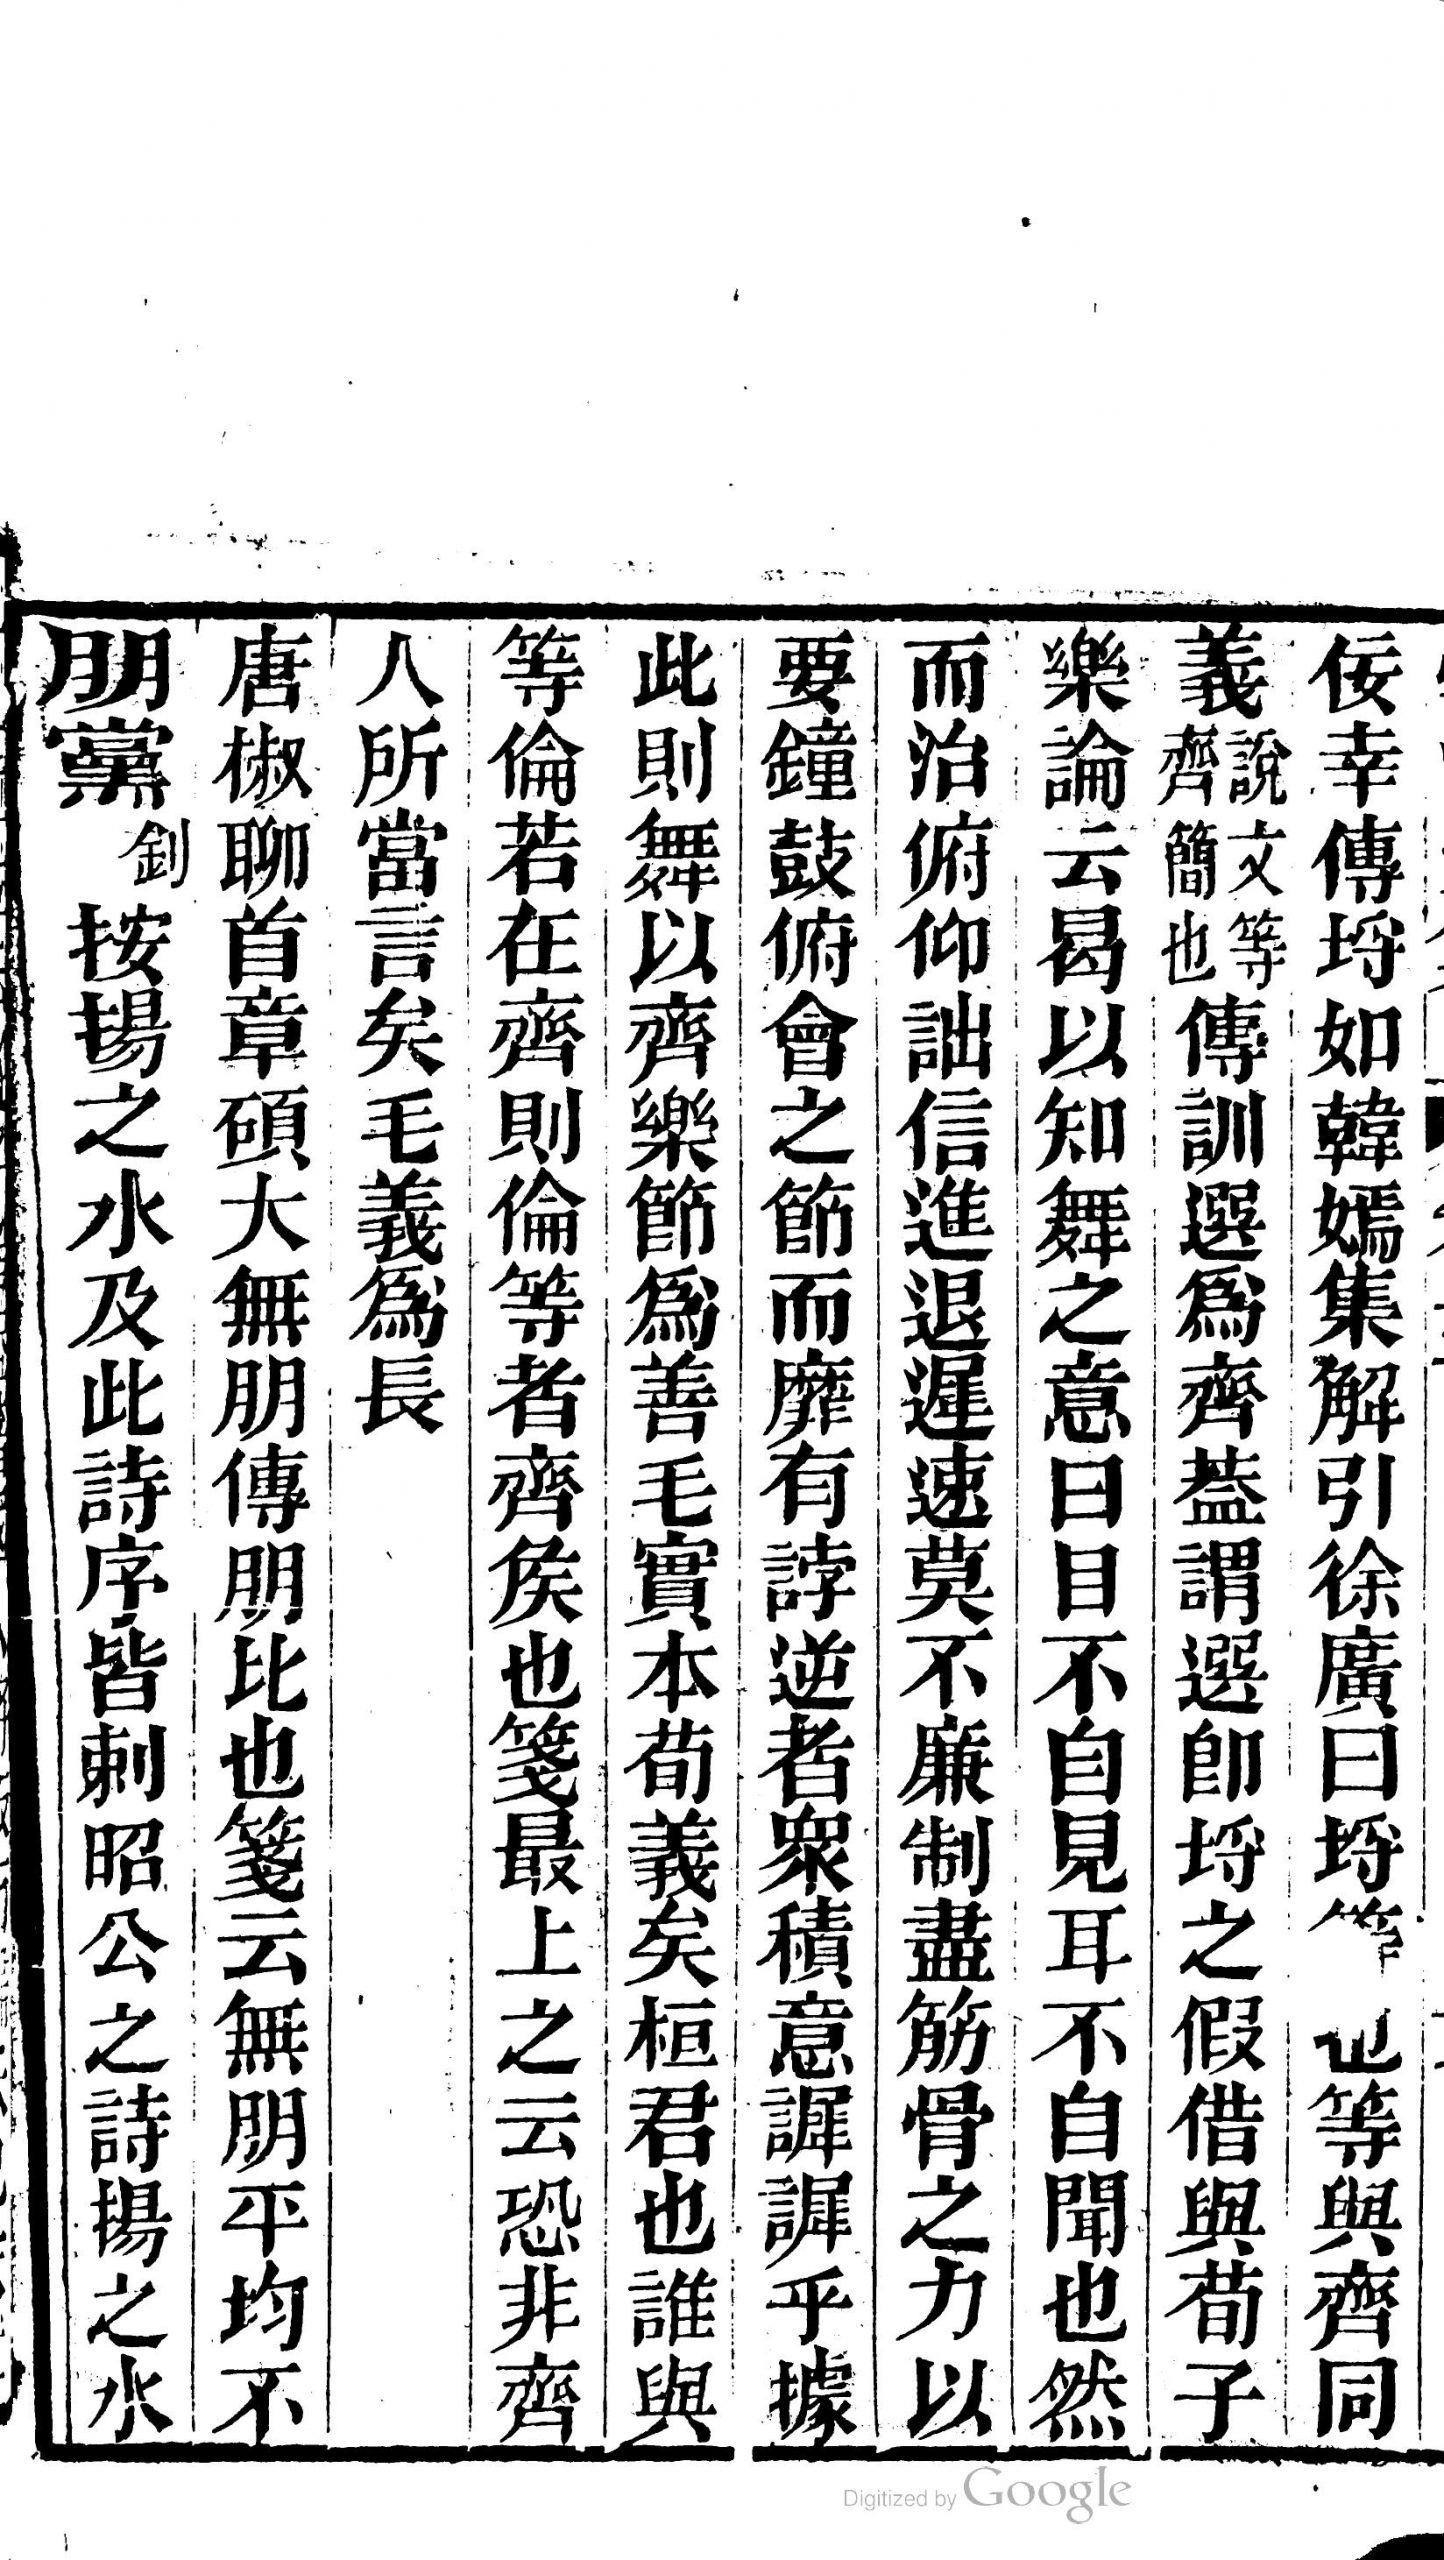 佞幸傳埒如韓嫣集解引徐廣曰埒等也等與齊同
義說文等齊簡也傳訓選爲齊葢謂選卽埒之假借與荀子
樂論云曷以知舞之意曰目不自見耳不自聞也然
而治俯仰詘信進退遲速莫不廉制盡筋骨之力以
要鐘鼓俯會之節而靡有誖逆者衆積意謘謘乎據
此則舞以齊樂節爲善毛實本荀義矣桓君也誰與
等倫若在齊則倫等者齊矦也箋最上之云恐非齊
人所當言矣毛義爲長
唐椒聊首章碩大無朋傳朋比也箋云無朋平均不
朋黨釗按揚之水及此詩序皆刺昭公之詩揚之水
Digitized by Google